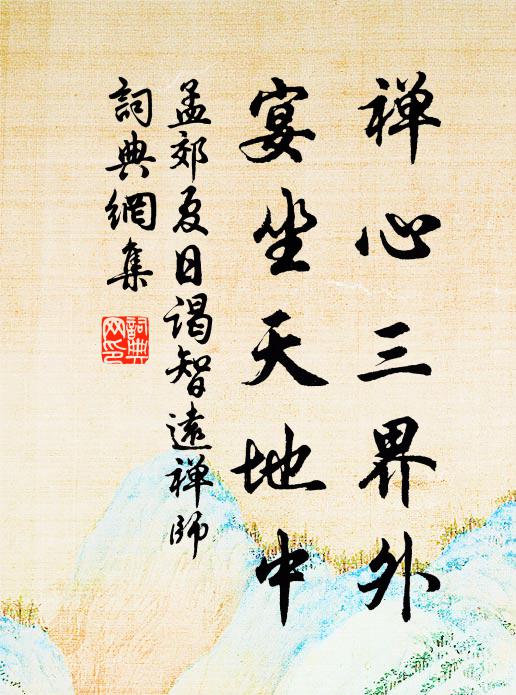 禅心三界外
宴坐天地中
孟郊夏日谒智遠禅師
詞典網集
詞典
网印